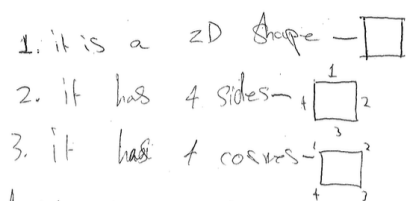 1. it is a 2D shape -
2. it has 4 sides- 1 2 3 4
3. it has 4 cosves- 1 2 3 4